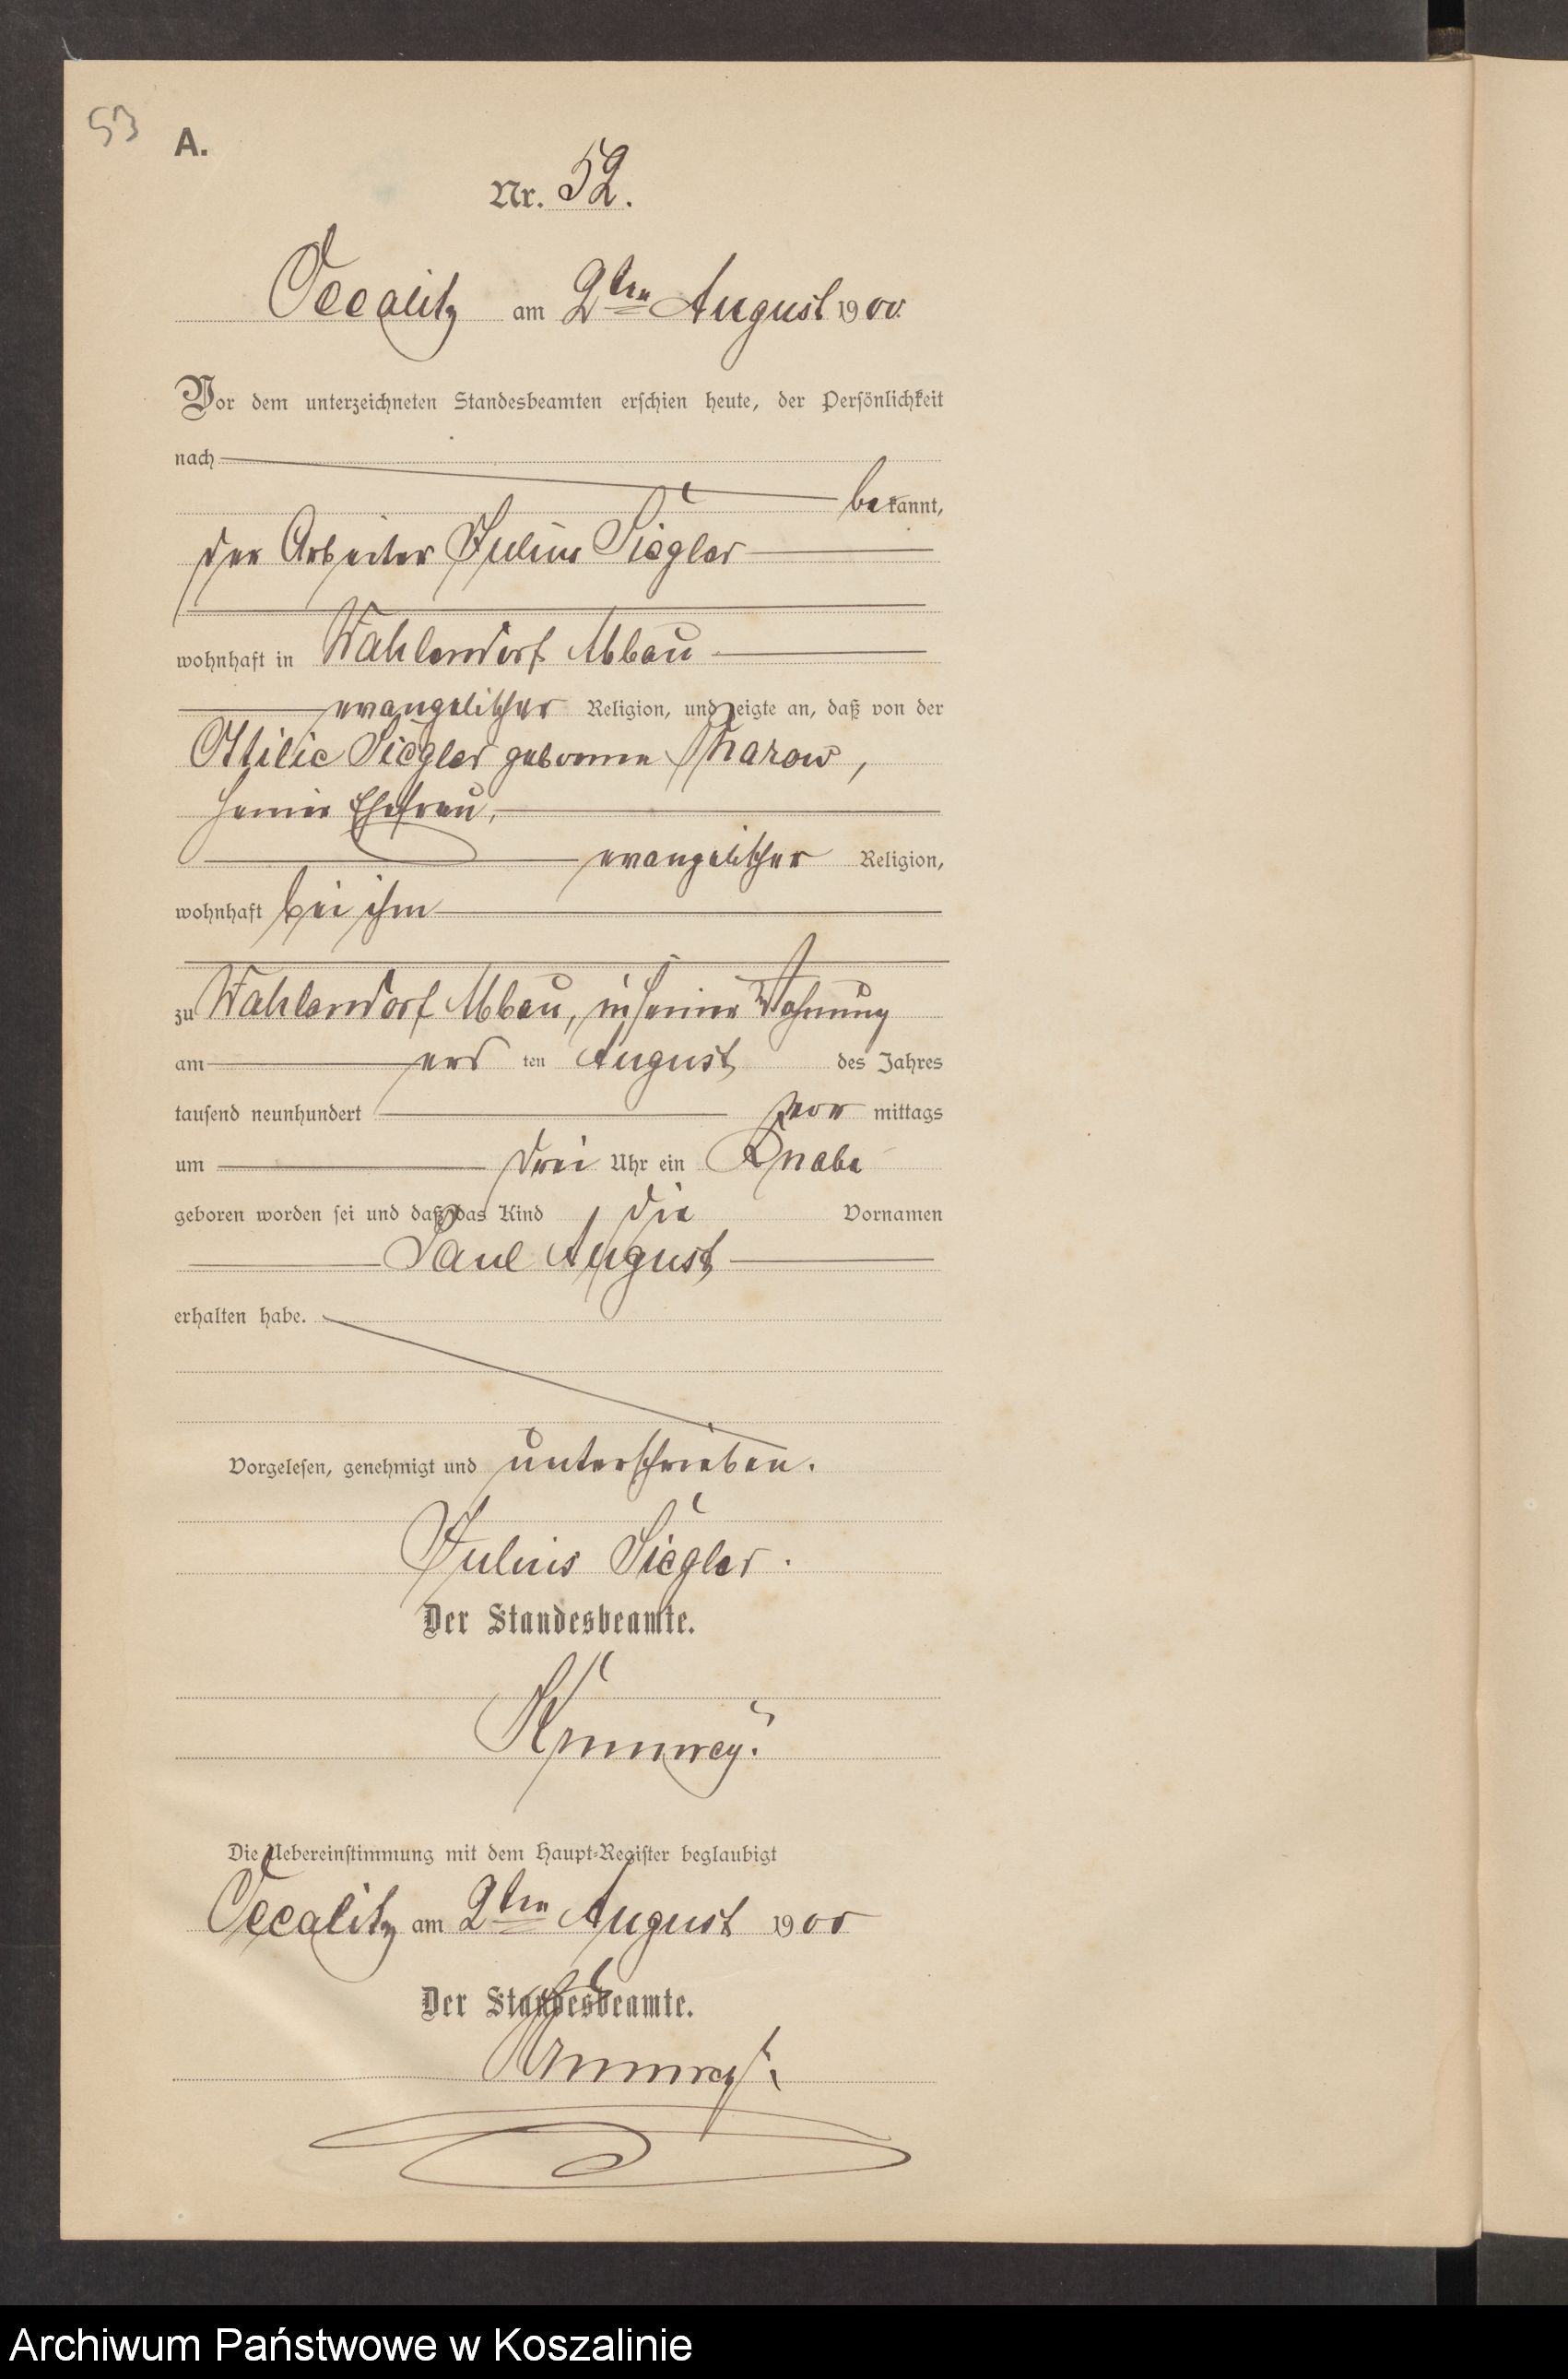 53
A.
Nr. 52.
Oecalitz am 2ten August 1900.
Vor dem unterzeichneten Standesbeamten erschien heute, der Persönlichkeit
nach
bekannt,
der Arbeiter Julius Siegler
wohnhaft in Wahlendorf Abbau
evangelischer Religion, und zeigte an, daß von der
Ottilie Siegler geborene Pharow,
seiner Ehefrau,
evangelischer Religion,
wohnhaft bei ihm
zu Wahlendorf Abbau, in seiner Wohnung
am ersten August des Jahres
tausend neunhundert vor mittags
um drei Uhr ein Knabe
geboren worden sei und daß das Kind die Vornamen
Paul August
erhalten habe.
Vorgelesen, genehmigt und unterschrieben.
Julius Siegler.
Der Standesbeamte.
Die Uebereinstimmung mit dem Haupt-Register beglaubigt
Oecalitz am 2ten August 1900
Der Standesbeamte.
Archiwum Państwowe w Koszalinie